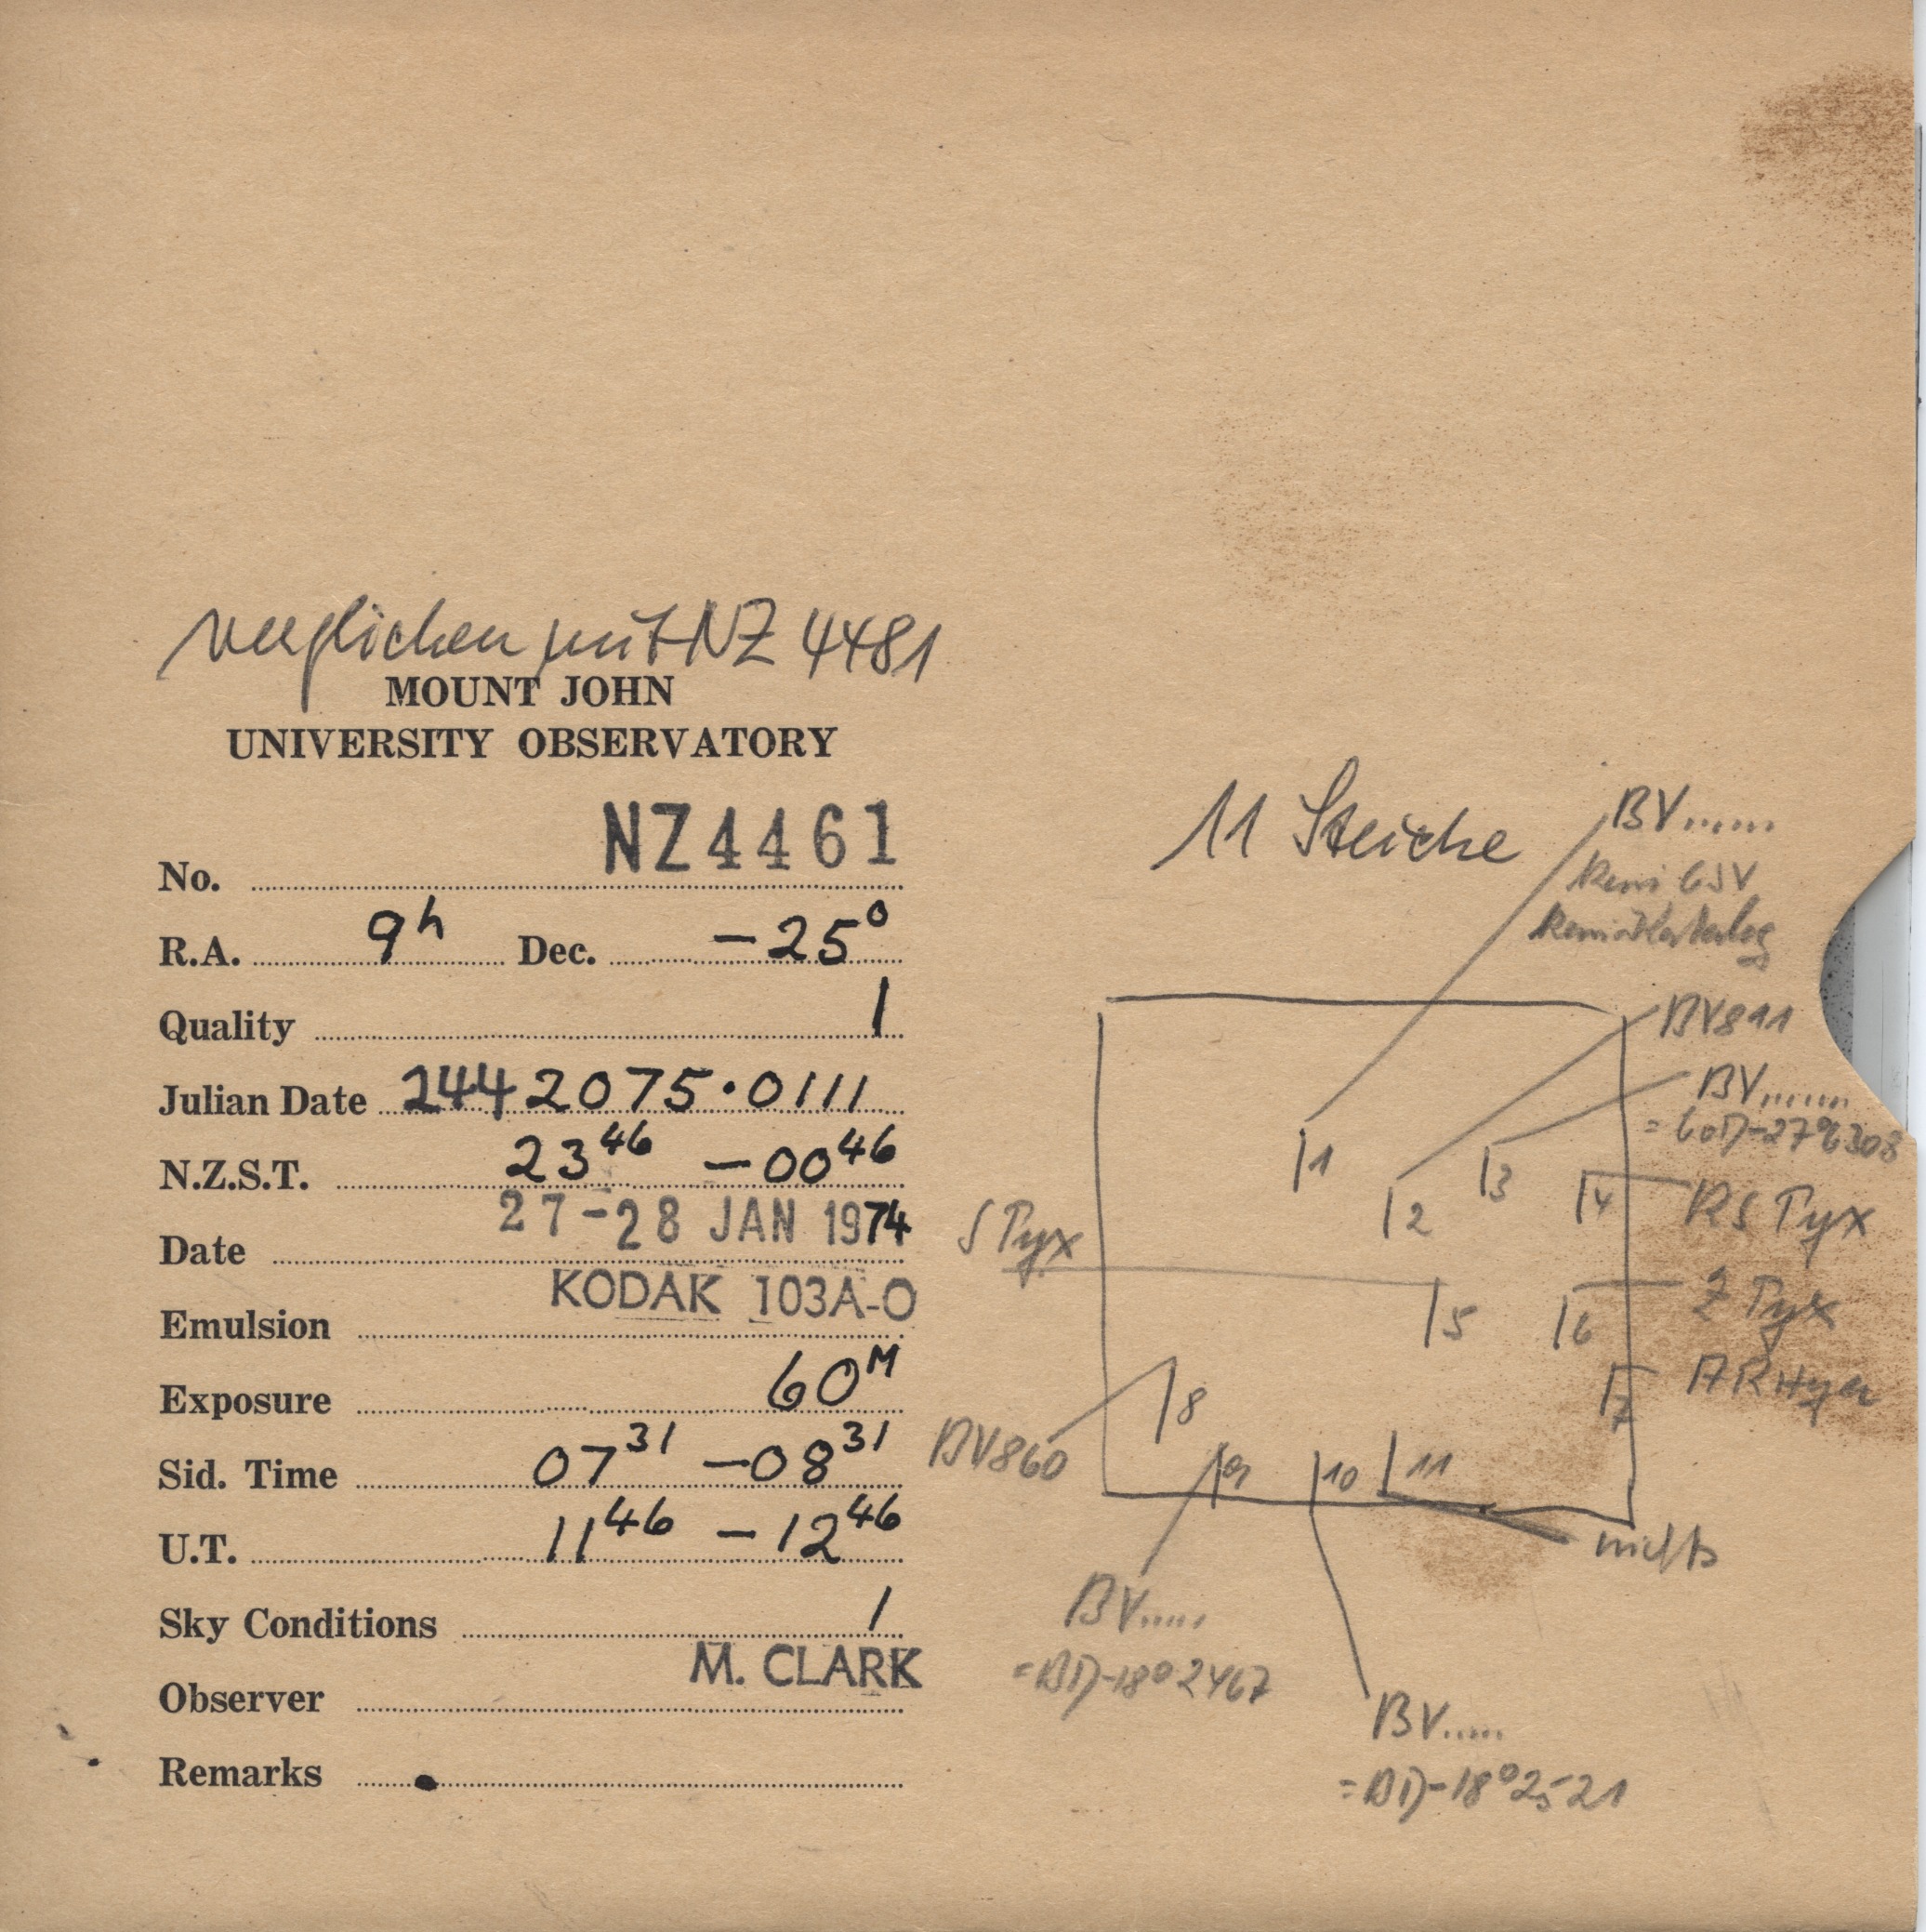 verglichen mit NZ 4481
MOUNT JOHN
UNIVERSITY OBSERVATORY
No. NZ4461
R.A. 9h Dec. -25°
Quality 1
Julian Date 2442075.0111
N.Z.S.T. 23 46 - 00 46
Date 27-28 JAN 1974
Emulsion KODAK 103A-O
Exposure 60M
Sid. Time 07 31 - 08 31
U.T. 11 46 - 12 46
Sky Conditions 1
Observer M. CLARK
Remarks
11 Striche
BV......
kein GSV
kein Katalog
BV811
BV.......
= CoD-27°6308
1
2
3
4
RS Pyx
S Pyx
5
6
Z Pyx
7
AR Hya
8
BV860
9
10
11
nichts
BV.....
=BD-18°2467
BV.....
=BD-18°2521